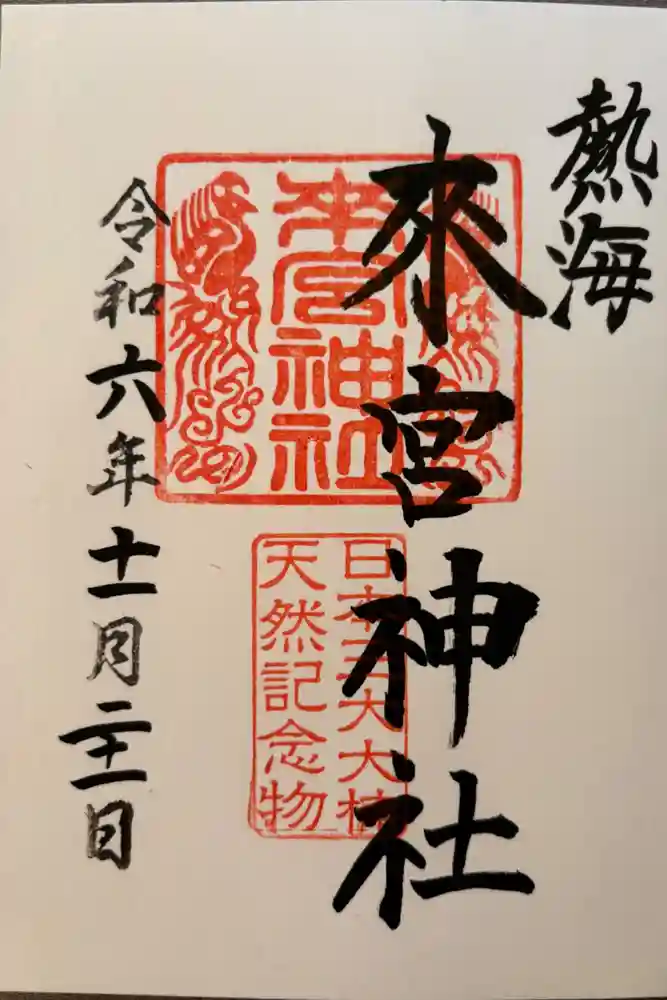 熱海
來宮神社
来宮神社
日本五大大楠
天然記念物
令和六年十一月二十一日